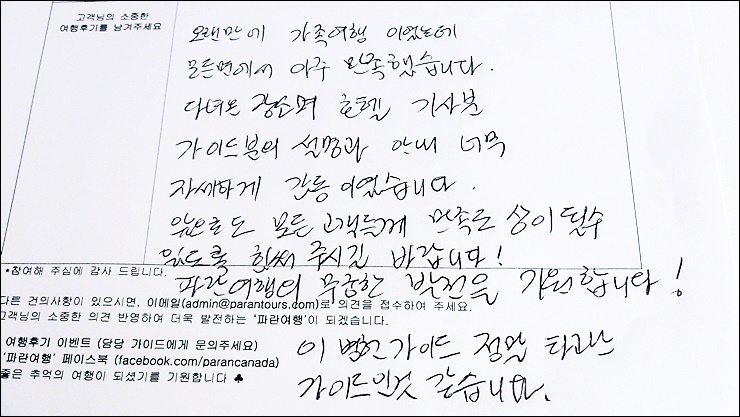 고객님의 소중한
여행후기를 남겨주세요
오랜만에 가족여행 이었는데
모든면에서 아주 만족했습니다.
다녀온 장소며 호텔 기사분
가이드분의 설명과 안내 너무
자세하게 감동이였습니다.
앞으로도 모든 고객들께 만족도 상이 될수
있도록 힘써 주시길 바랍니다!
*참여해 주심에 감사 드립니다.
파란여행의 무궁한 발전을 기원합니다!
다른 건의사항이 있으시면, 이메일(admin@parantours.com)로 의견을 접수하여 주세요.
고객님의 소중한 의견 반영하여 더욱 발전하는 '파란여행'이 되겠습니다.
여행후기 이벤트 (담당 가이드에게 문의주세요)
'파란여행' 페이스북 (facebook.com/parancanada)
좋은 추억의 여행이 되셨기를 기원합니다 ♣
이 병헌가이드 정말 타고난
가이드인것 같습니다.